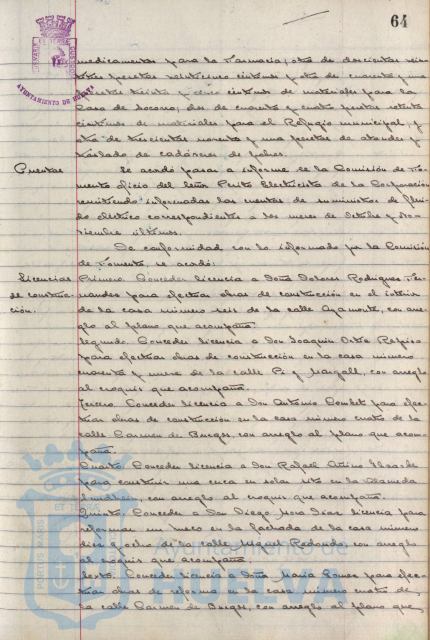 64
AYUNTAMIENTO DE HUELVA
medicamentos para la Farmacia; otra de doscientas
pesetas veinticinco céntimos y otra de cuarenta y una
pesetas treinta y cinco céntimos de materiales para la
Casa de Socorro; dos de cuarenta y cuatro pesetas ochenta
céntimos de materiales para el Refugio municipal, y
otra de trescientas noventa y una pesetas de ataudes y
traslado de cadáveres de pobres.
Cuentas
Se acordó pasar a informe de la Comisión de Fo-
mento oficio del Señor Perito Electricista de la Corporación
remitiendo informadas las cuentas de suministros de flui-
do eléctrico correspondientes a los meses de Octubre y No-
viembre últimos.
De conformidad con lo informado por la Comisión
de Fomento, se acordó:
Licencias
de construc-
ción.
Primero. Conceder licencia a Doña Dolores Rodriguez Fer-
nandez para efectuar obras de construcción en el interior
de la casa número seis de la calle Ayamonte, con arre-
glo al plano que acompaña.
Segundo. Conceder licencia a Don Joaquin Ortiz
para efectuar obras de construcción en la casa número
cuarenta y nueve de la calle Pi y Margall, con arreglo
al croquis que acompaña.
Tercero. Conceder licencia a Don Antonio para efec-
tuar obras de construcción en la casa número cuatro de la
calle Carmen de Burgos, con arreglo al plano que acom-
paña.
Cuarto. Conceder licencia a Don Rafael
para construir una cerca en solar sito en la Alameda
con arreglo al croquis que acompaña.
Quinto. Conceder a Don Diego Mora Diaz licencia para
reformar un hueco en la fachada de la casa número
diez y ocho de la calle Miguel Redondo con arreglo
al croquis que acompaña.
Sexto. Conceder licencia a Doña Maria Gomez para efec-
tuar obras de reforma en la casa número cuatro de
la calle Carmen de Burgos, con arreglo al plano que,
Ayuntamiento de
HUELVA